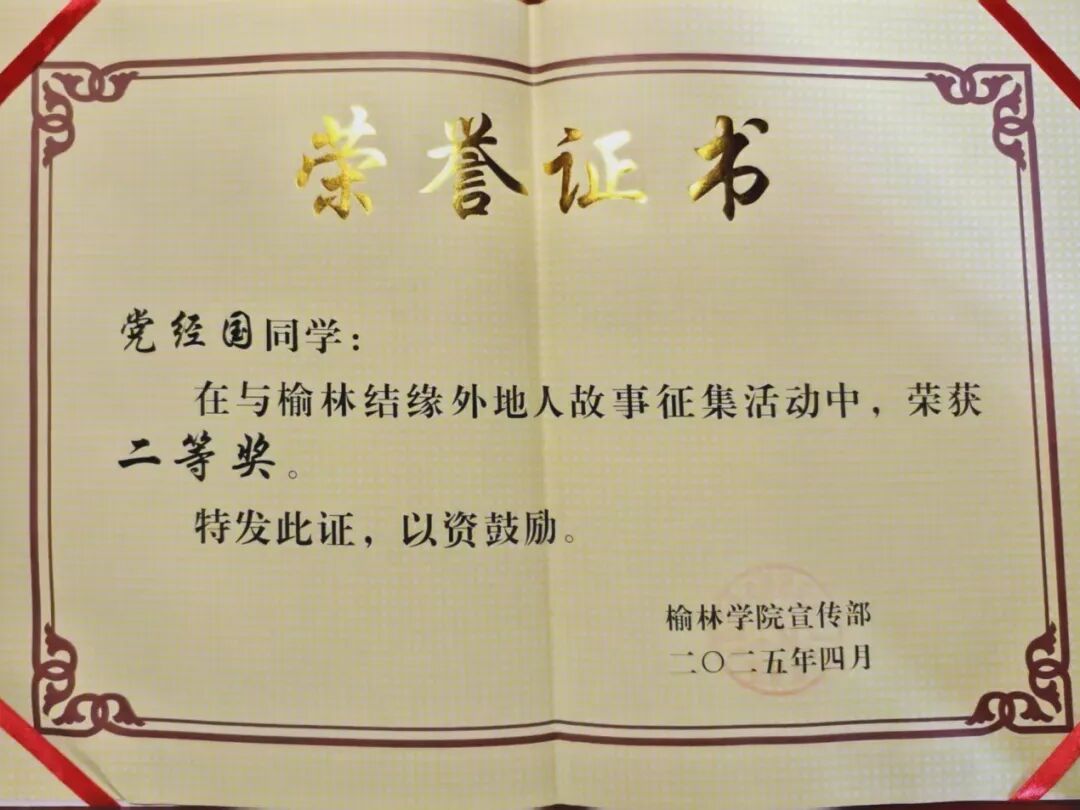 荣誉证书
党经国同学：
在与榆林结缘外地人故事征集活动中，荣获
二等奖。
特发此证，以资鼓励。
榆林学院宣传部
二〇二五年四月